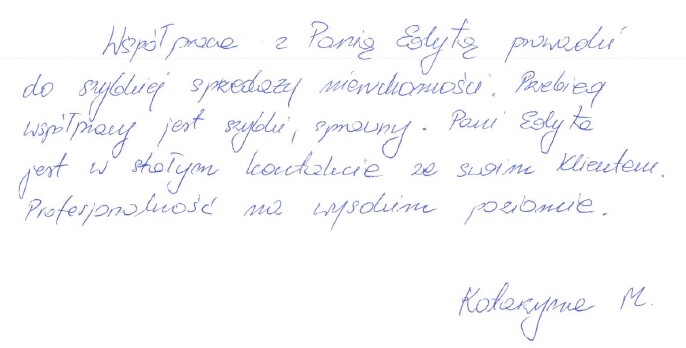 Współpraca z Panią Edytą prowadzi
do szybkiej sprzedaży nieruchomości. Przebieg
współpracy jest szybki, sprawny. Pani Edyta
jest w stałym kontakcie ze swoim Klientem.
Profesjonalność na wysokim poziomie.
Katarzyna M.